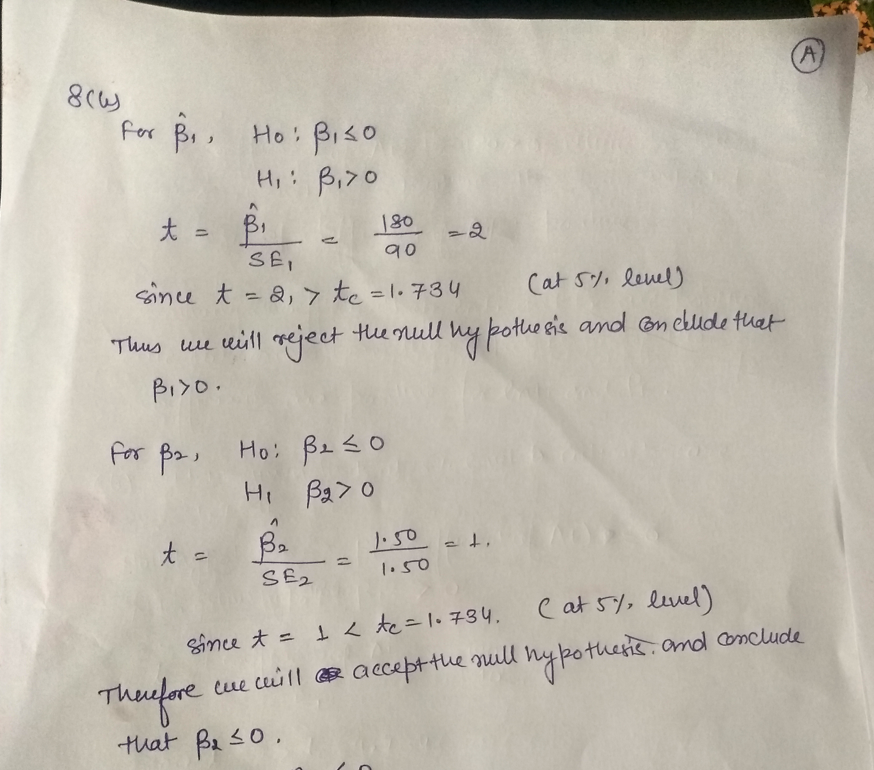 (A)
8(b)
For β̂₁, H₀: β₁ ≤ 0
H₁: β₁ > 0
t = β̂₁ / SE₁ = 180 / 90 = 2
since t = 2, > tc = 1.734 (at 5% level)
Thus we will reject the null hypothesis and conclude that
β₁ > 0.
For β₂, H₀: β₂ ≤ 0
H₁ β₂ > 0
t = β̂₂ / SE₂ = 1.50 / 1.50 = 1.
since t = 1 < tc = 1.734. (at 5% level)
Therefore we will accept the null hypothesis. and conclude
that β₂ ≤ 0.